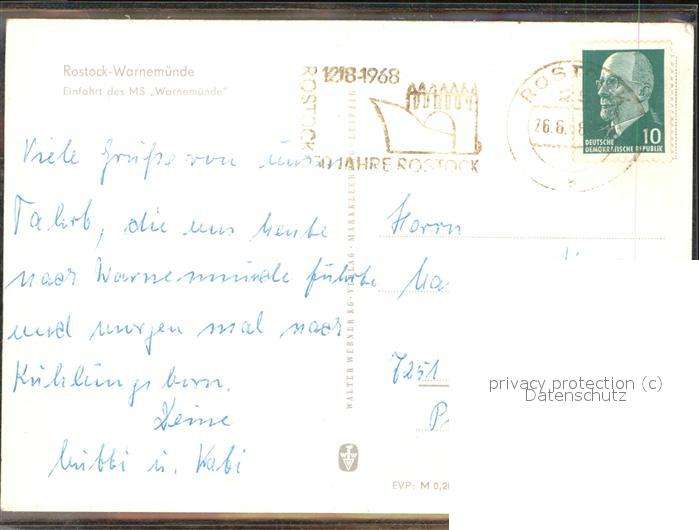 Rostock-Warnemünde
Einfahrt des MS „Warnemünde"
ROSTOCK
1218-1968
750 JAHRE ROSTOCK
ROSTO
26.6.68
10
DEUTSCHE
DEMOKRATISCHE REPUBLIK
Viele Grüße von
Fahrt, die uns heute
nach Warnemünde führte
und morgen mal nach
Kühlungsborn.
Deine
Mutti u. Vati
WALTER WERNER KG · VERLAG · MARKKLEEBERG-LEIPZIG
Herrn
7251
EVP: M 0,2
privacy protection (c)
Datenschutz